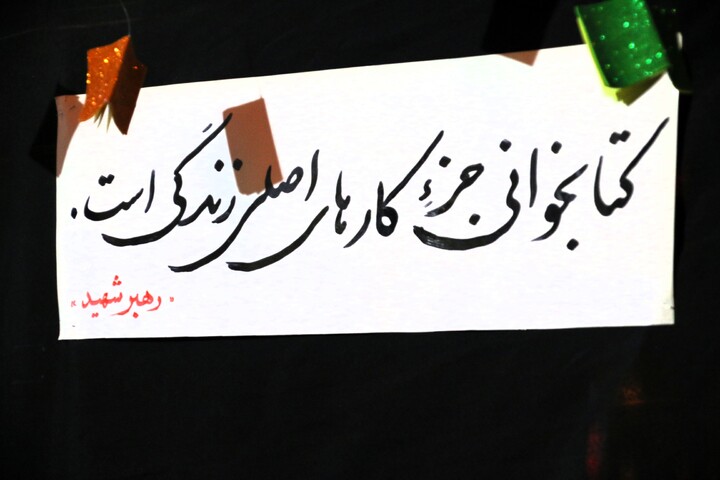 کتابخوانی جزءِ کارهای اصلی زندگی است.
«رهبر شهید»